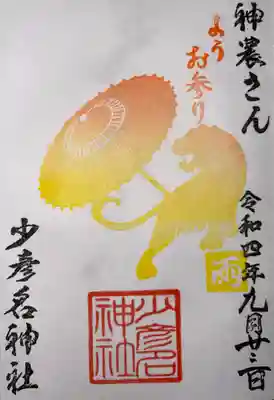 神農さん
よう
お参り
令和四年九月廿三日
雨
少彦名
神社
少彦名神社